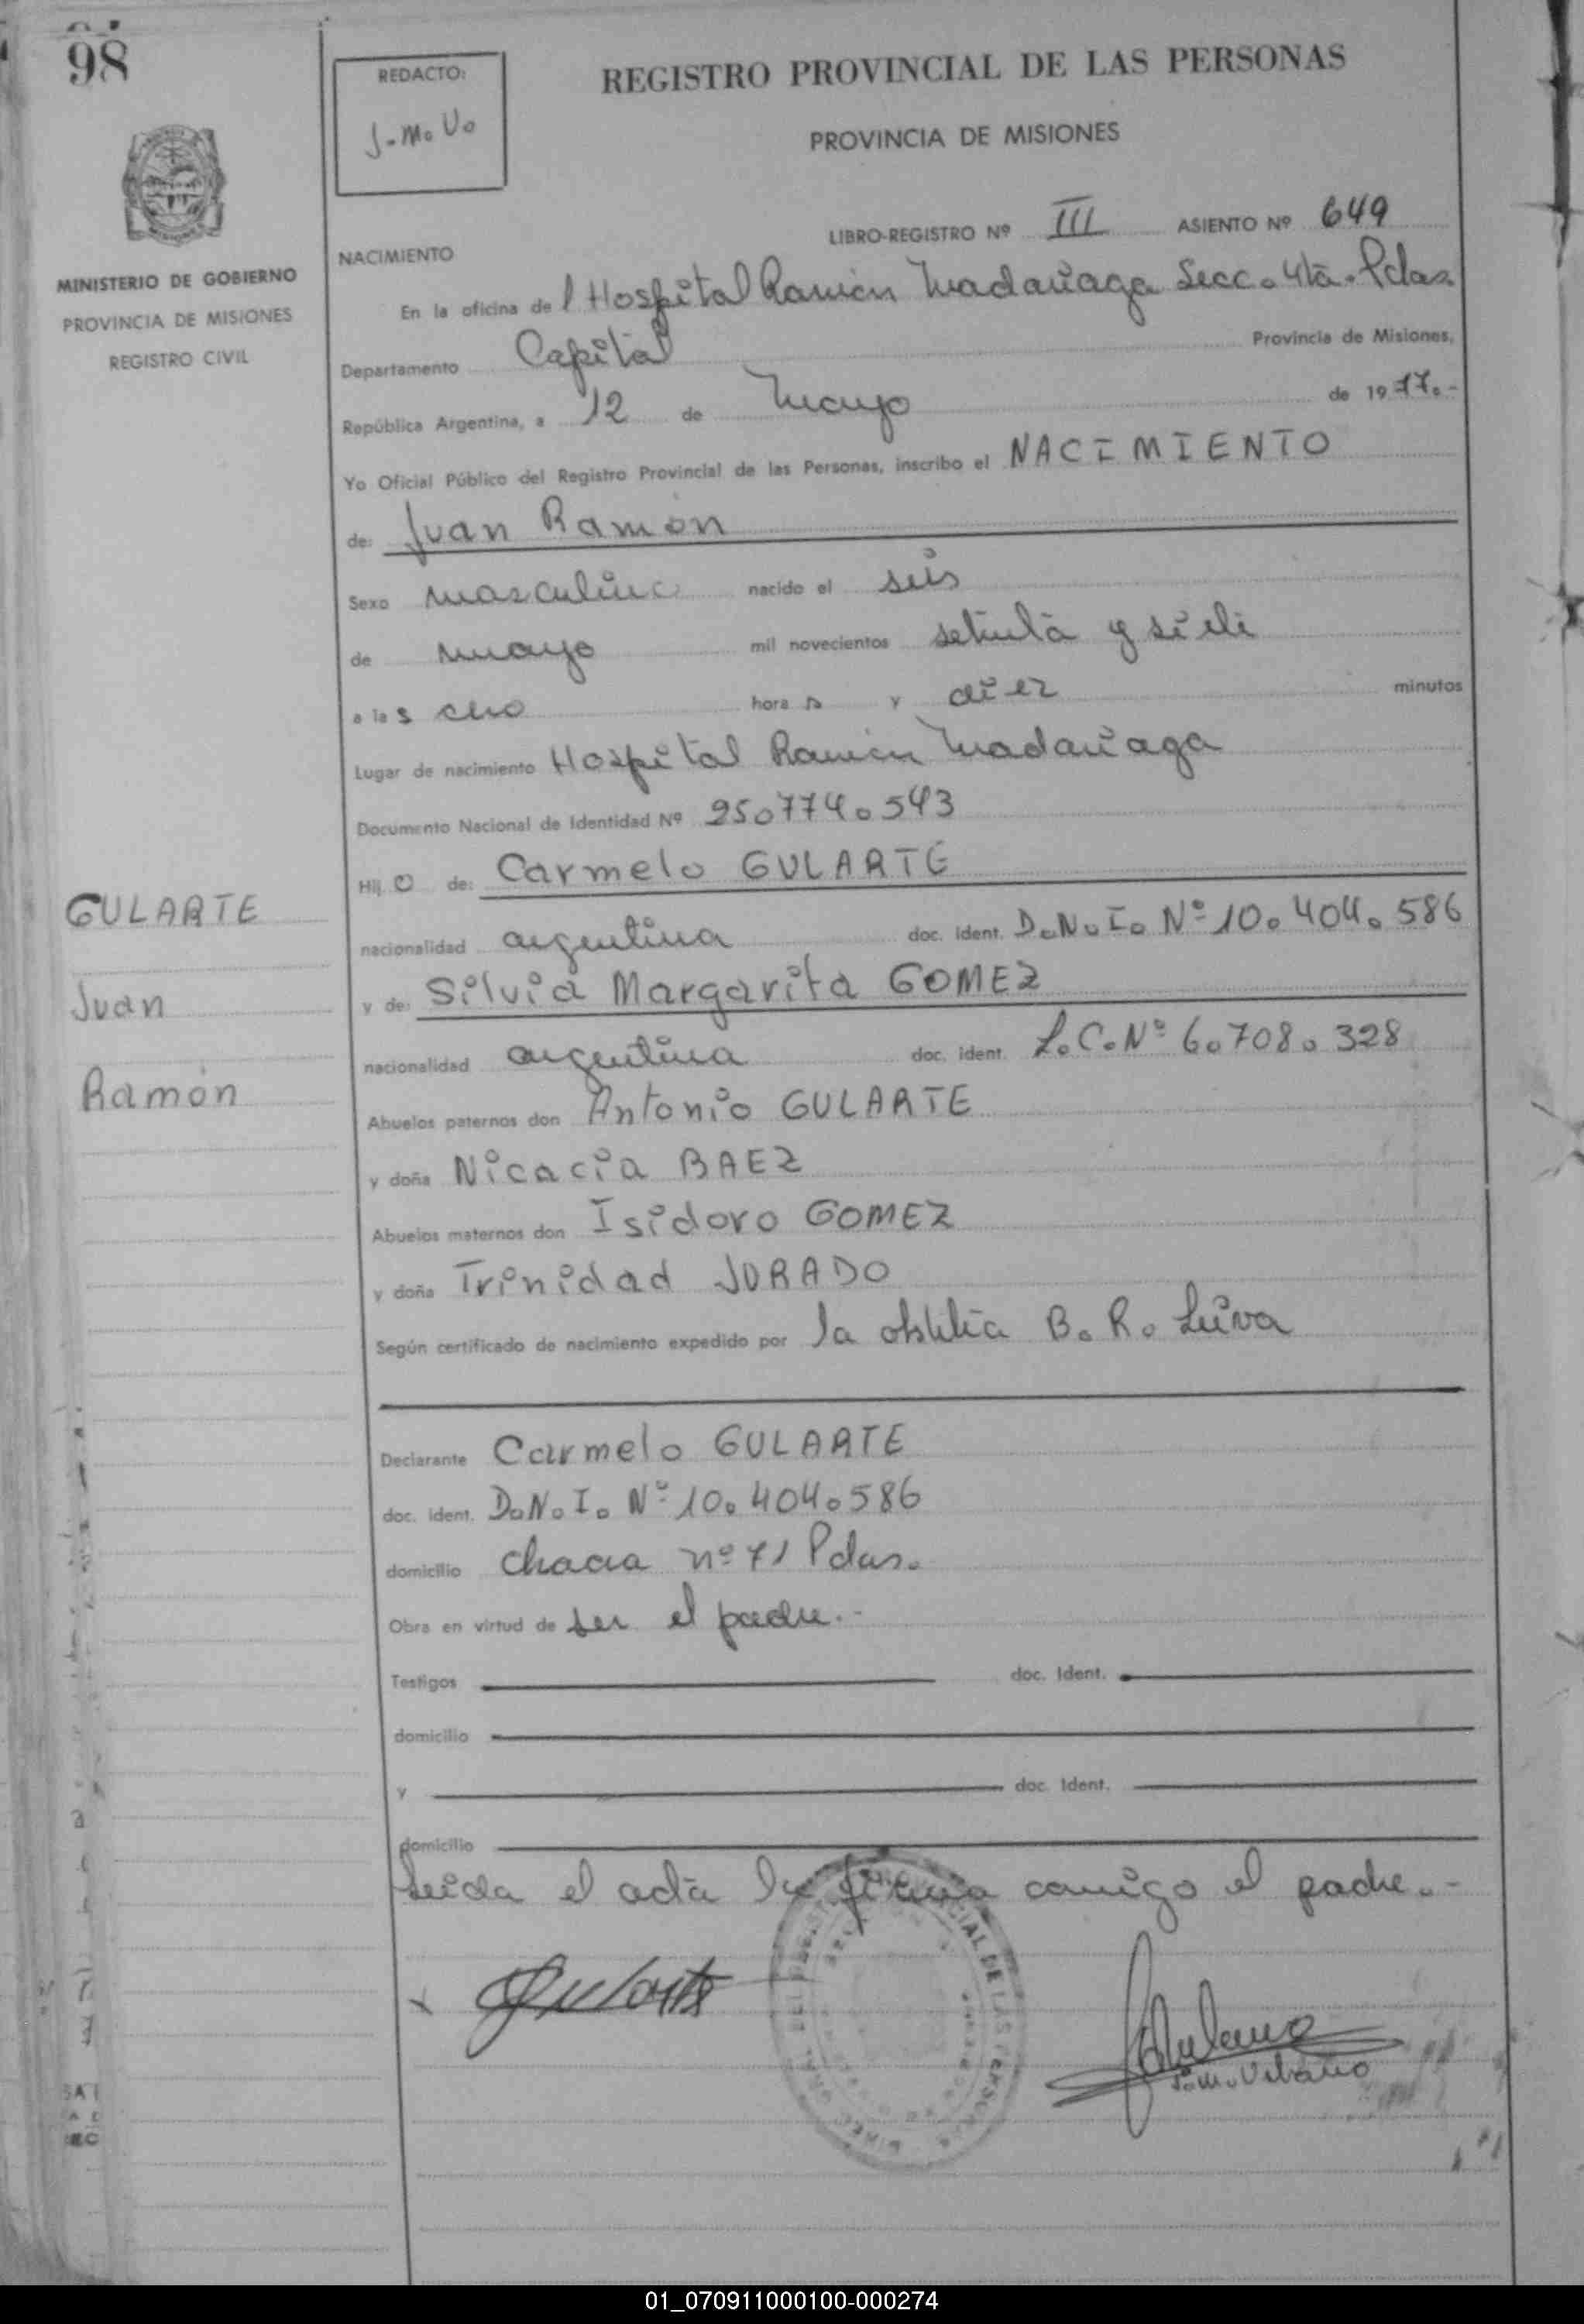 98
REDACTO:
J.M.V.
REGISTRO PROVINCIAL DE LAS PERSONAS
PROVINCIA DE MISIONES
MINISTERIO DE GOBIERNO
PROVINCIA DE MISIONES
REGISTRO CIVIL
LIBRO-REGISTRO Nº III ASIENTO Nº 649
NACIMIENTO
En la oficina del Hospital Ramón Madariaga Secc. 4ta. Pdas.
Departamento Capital Provincia de Misiones,
República Argentina, a 12 de Mayo de 1977.-
Yo Oficial Público del Registro Provincial de las Personas, inscribo el NACIMIENTO
de: Juan Ramón
Sexo masculino nacido el seis
de mayo mil novecientos setenta y siete
a las ocho horas y diez minutos
Lugar de nacimiento Hospital Ramón Madariaga
Documento Nacional de Identidad Nº 25.774.543
Hijo de: Carmelo GULARTE
nacionalidad argentina doc. ident. D.N.I. Nº 10.404.586
y de: Silvia Margarita GOMEZ
nacionalidad argentina doc. ident. L.C. Nº 6.708.328
Abuelos paternos don Antonio GULARTE
y doña Nicacia BAEZ
Abuelos maternos don Isidoro GOMEZ
y doña Trinidad JURADO
Según certificado de nacimiento expedido por la obstetra B. R. Leiva
GULARTE
Juan
Ramón
Declarante Carmelo GULARTE
doc. ident. D.N.I. Nº 10.404.586
domicilio chacra nº 71 Pdas.
Obra en virtud de ser el padre.-
Testigos doc. Ident.
domicilio
y doc. Ident.
domicilio
Leida el acta la firma conmigo el padre.-
x Gularte
J.M. Urbano
01_070911000100-000274